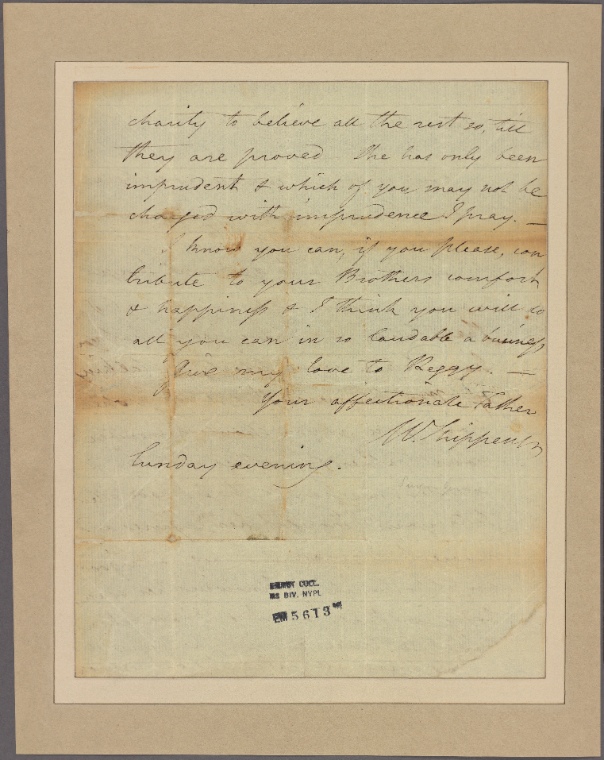 charity to believe all the rest so, till
they are proved She has only been
imprudent & which of you may not be
charged with imprudence I pray. —
I know you can, if you please, con
tribute to your Brothers comfort
& happiness & I think you will do
all you can in so laudable a business,
Give my love to Peggy. —
Your affectionate Father
W. Shippen
Sunday evening.
EMMET COLL.
MS DIV. NYPL
EM 5613